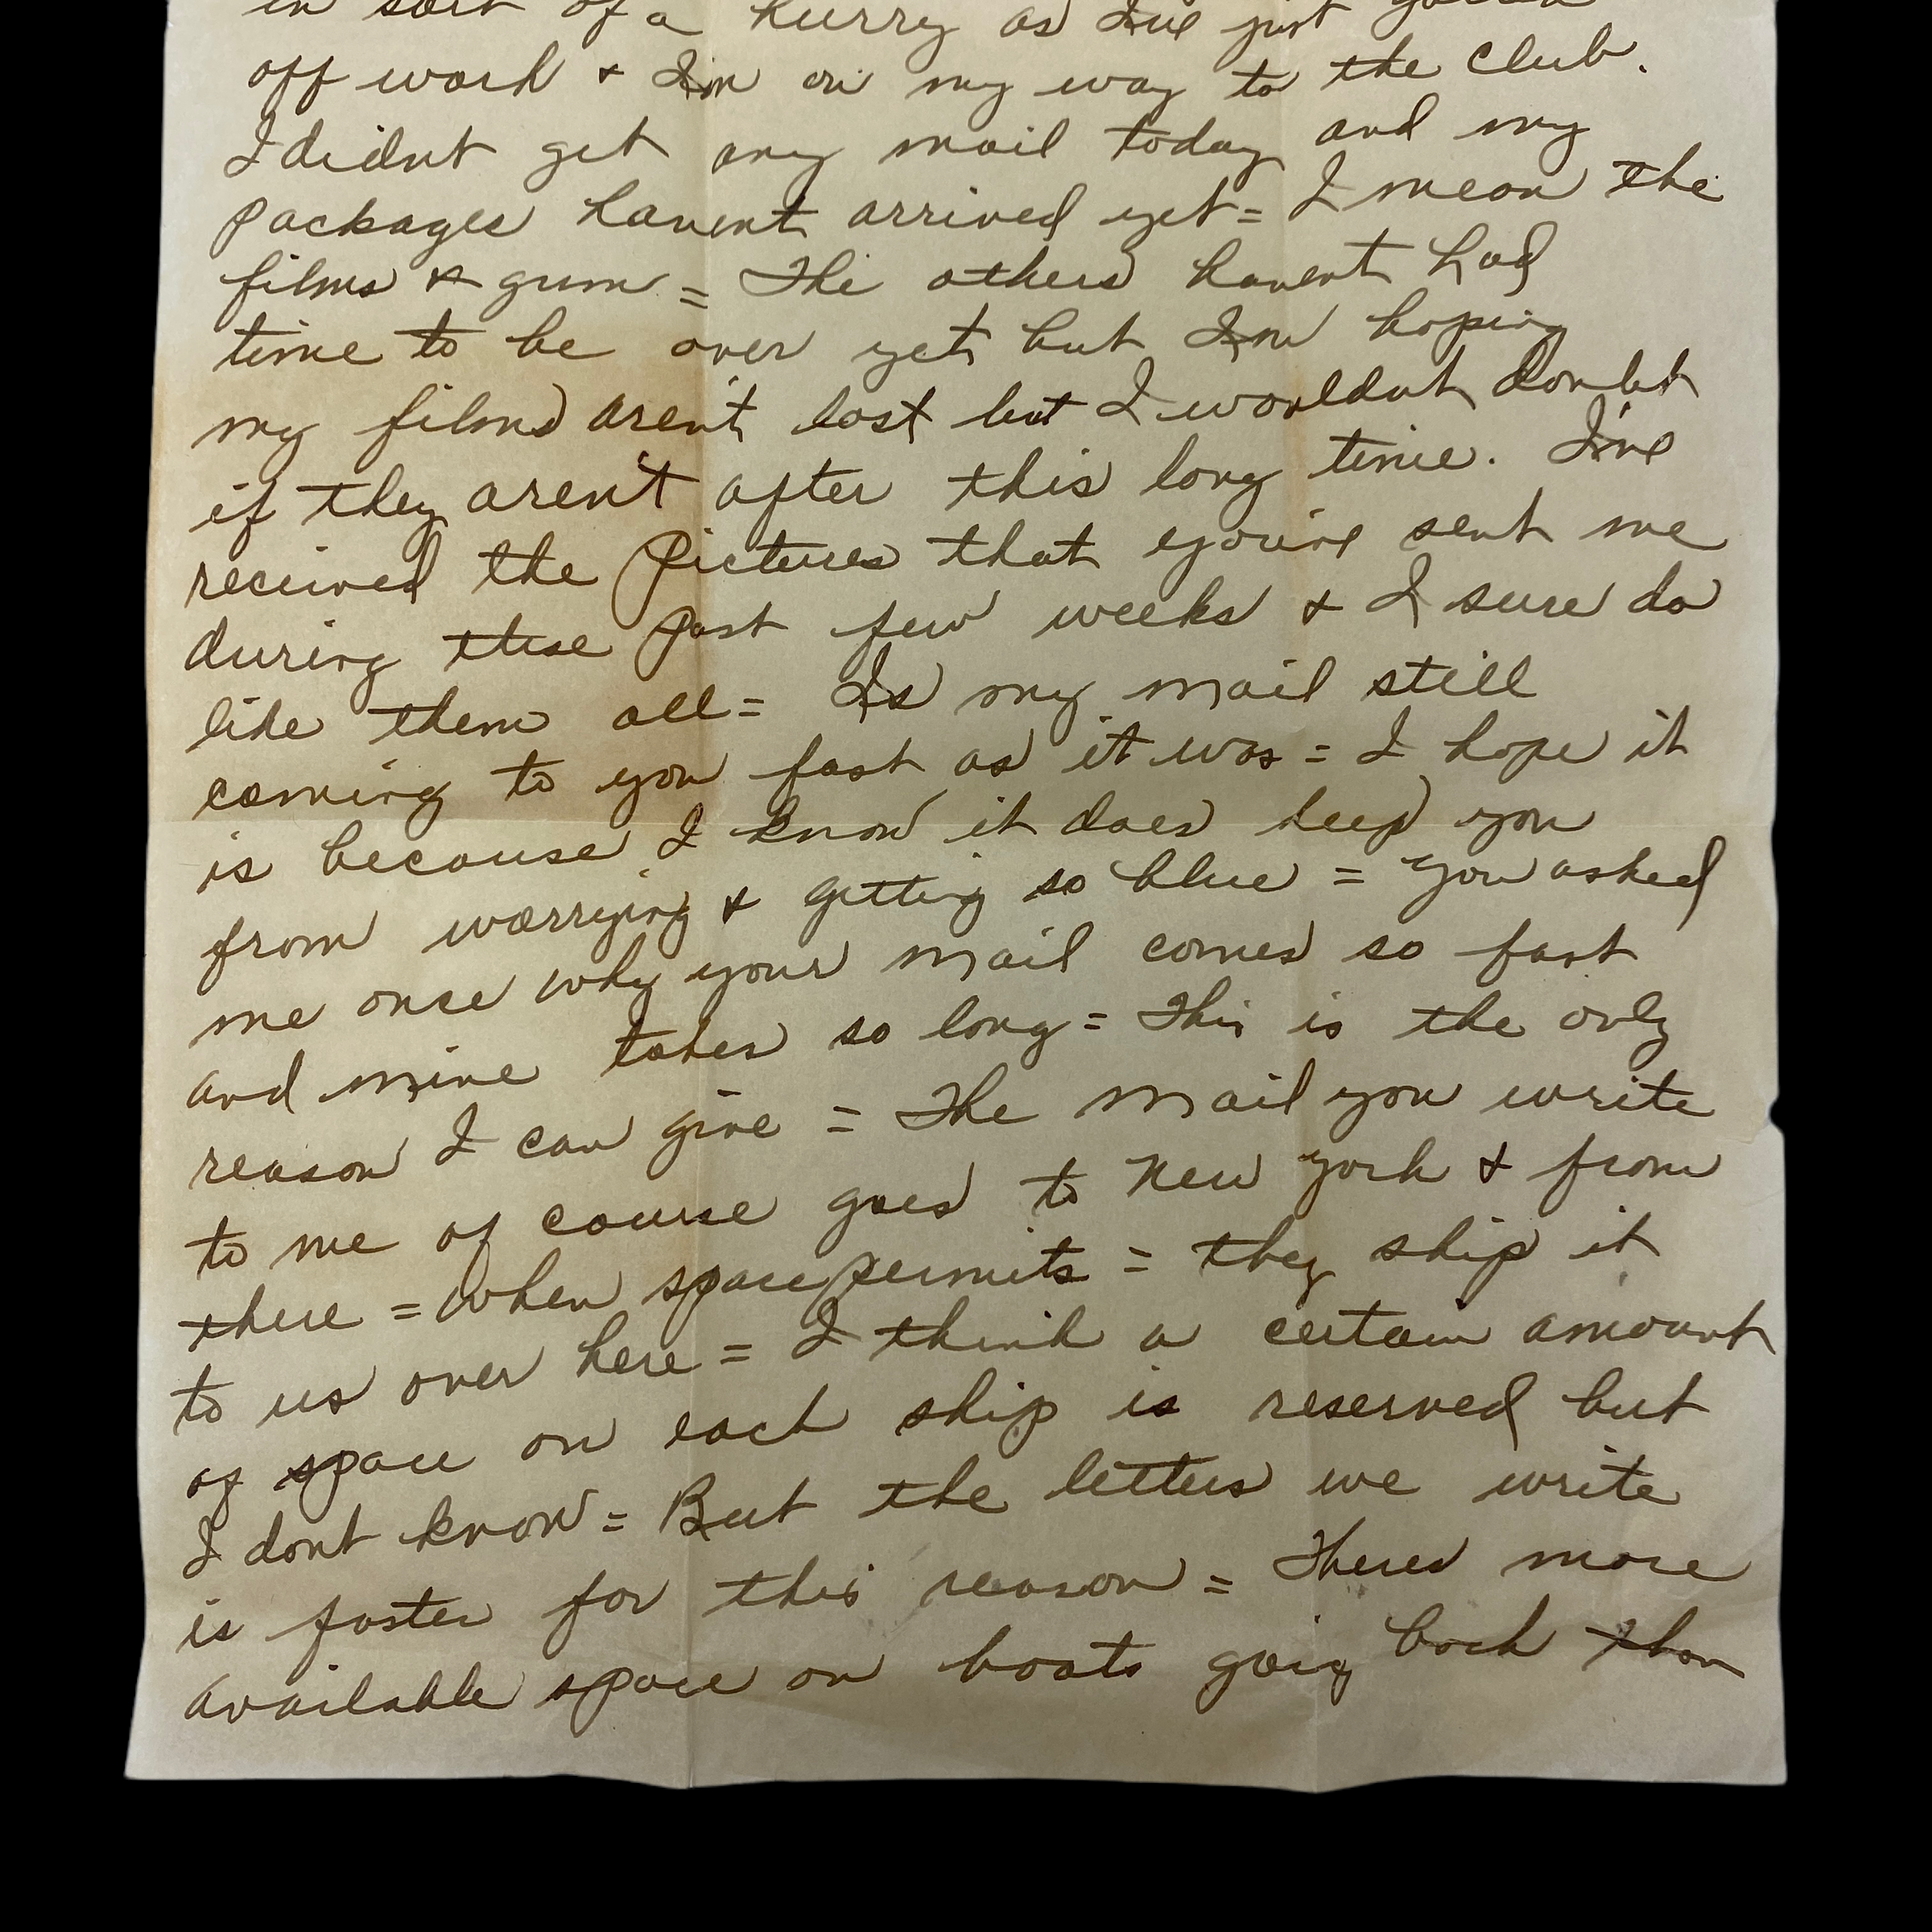 in sort of a hurry as I've just gotten
off work & I'm on my way to the club.
I didnt get any mail today and my
packages havent arrived yet = I mean the
films & gum = The others havent had
time to be over yet but Im hoping
my films aren't lost but I wouldnt doubt
if they aren't after this long time. I've
received the pictures that you've sent me
during these past few weeks & I sure do
like them all = Is my mail still
coming to you fast as it was = I hope it
is because I know it does keep you
from worrying & getting so blue = you asked
me once why your mail comes so fast
and mine takes so long = This is the only
reason I can give = The mail you write
to me of course goes to New York & from
there = when space permits = they ship it
to us over here = I think a certain amount
of space on each ship is reserved but
I dont know = But the letters we write
is faster for this reason = Theres more
available space on boats going back than